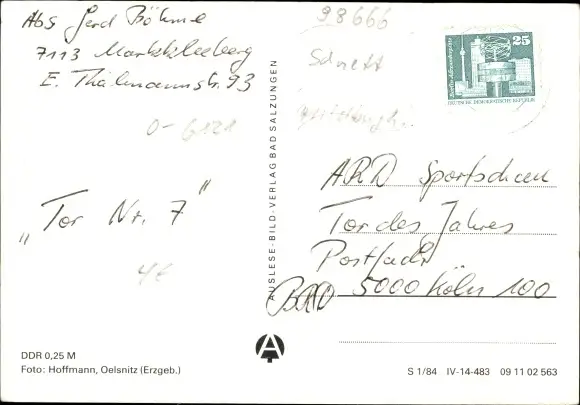 Abs Gerd Böhme
7113 Markkleeberg
E. Thälmannstr. 93
0-6121
„Tor Nr. 7"
4€
DDR 0,25 M
Foto: Hoffmann, Oelsnitz (Erzgeb.)
AUSLESE-BILD-VERLAG BAD SALZUNGEN
98666
25
DEUTSCHE DEMOKRATISCHE REPUBLIK
ARD Sportschau
Tor des Jahres
Postfach
BRD 5000 Köln 100
A
S 1/84 IV-14-483 09 11 02 563